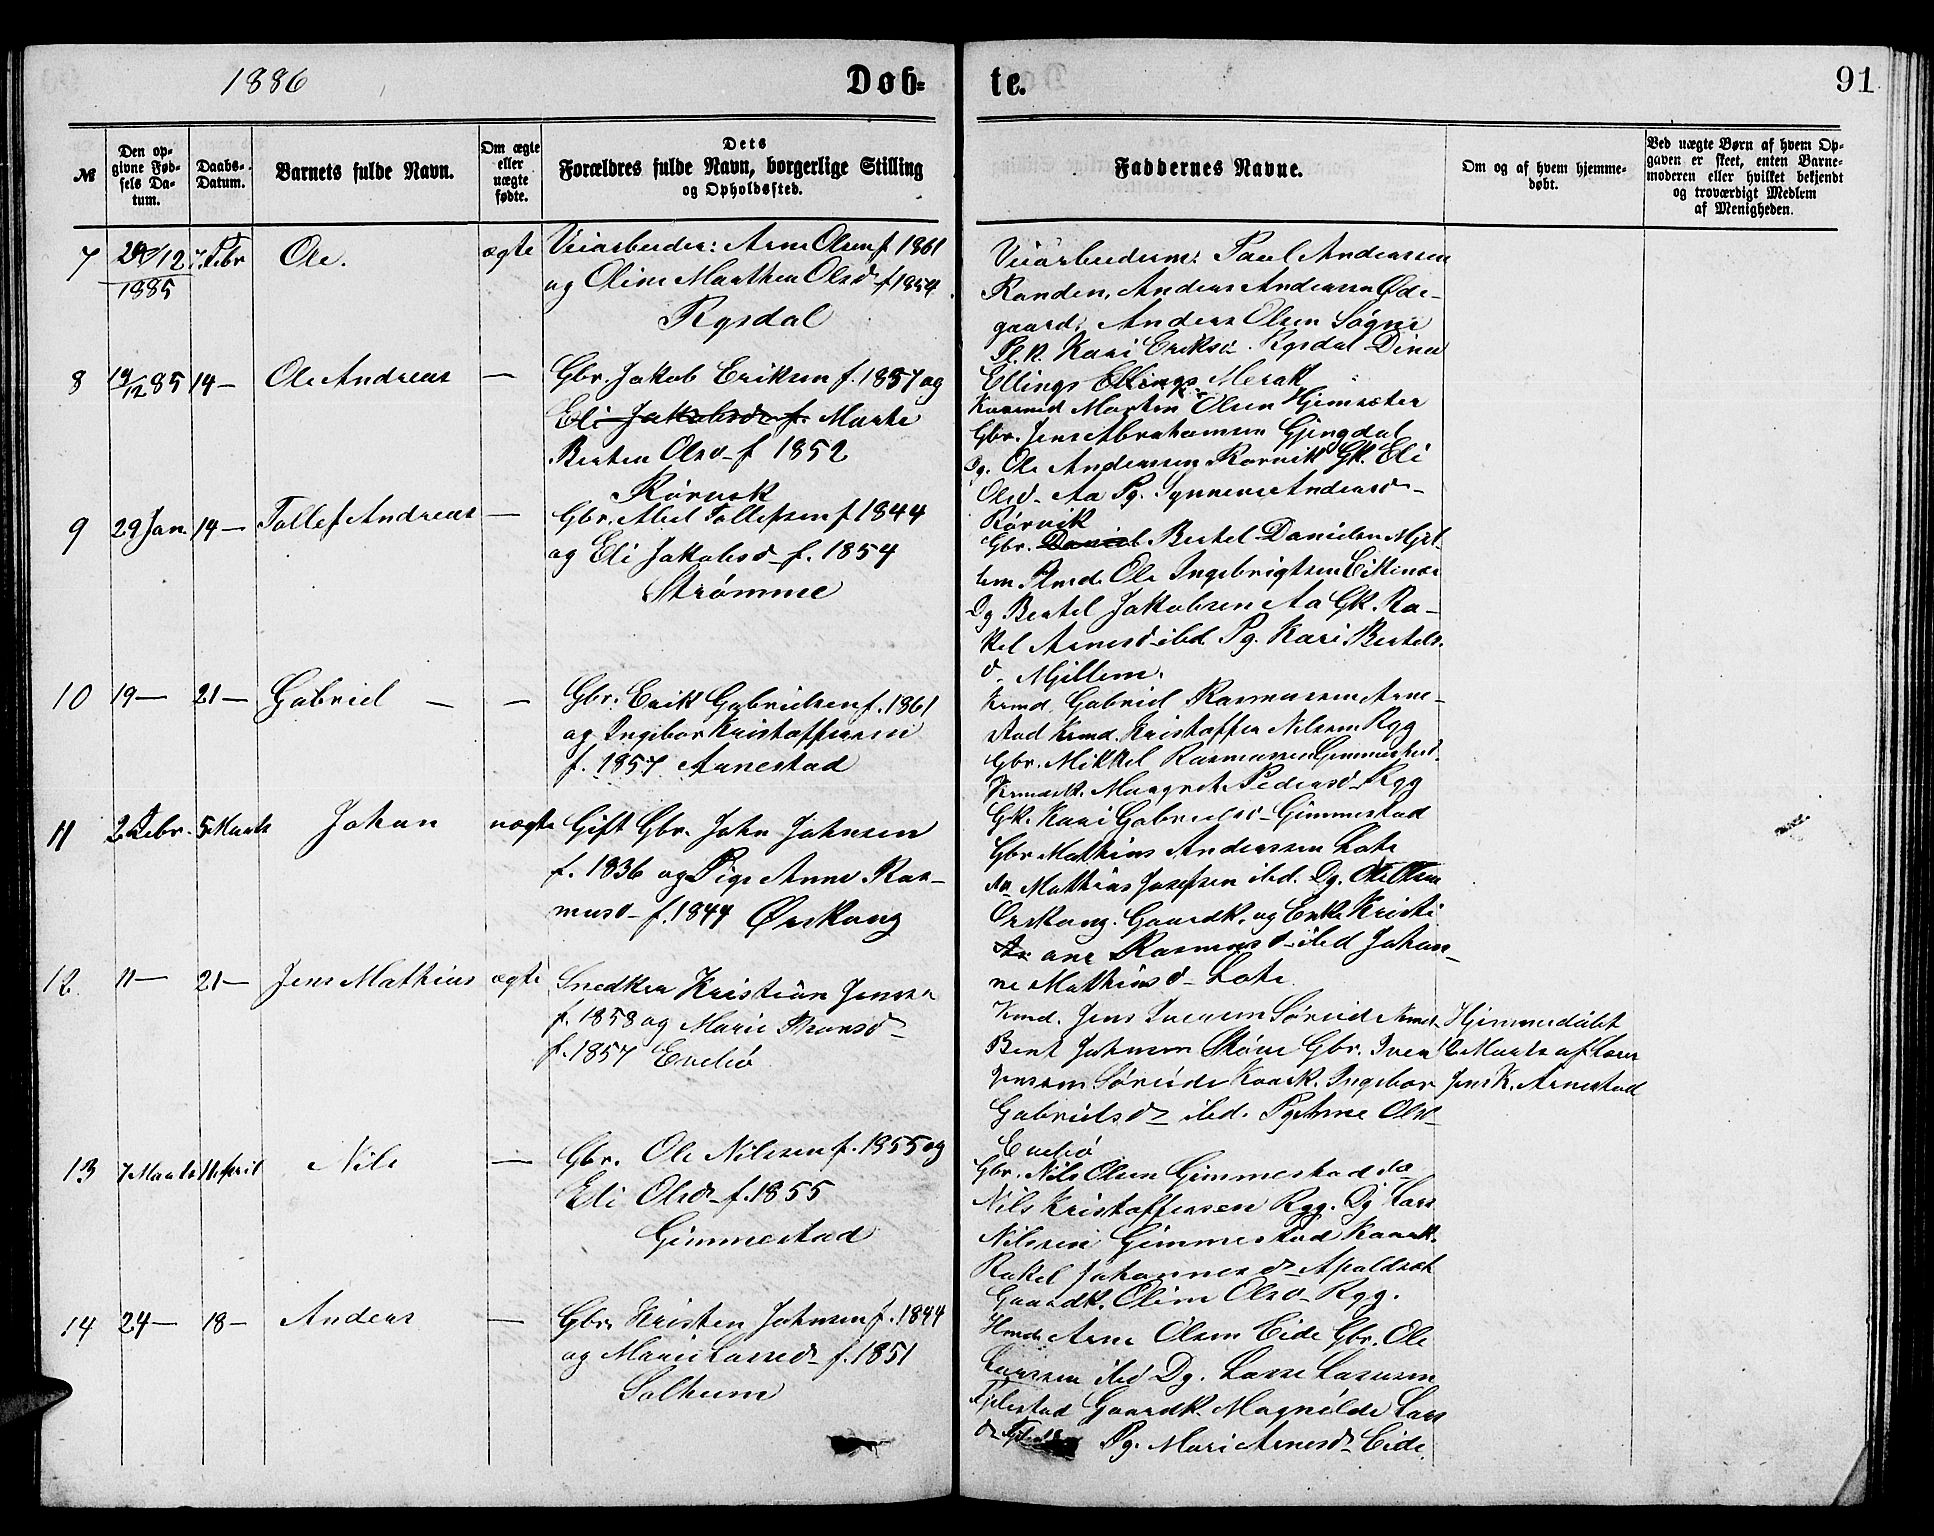 1886
Døb-
te.
91
№
Den op-
givne Fød-
sels Da-
tum.
Daabs-
Datum.
Barnets fulde Navn.
Om ægte
eller
uægte
fødte.
Dets
Forældres fulde Navn, borgerlige Stilling
og Opholdssted.
Faddernes Navne.
Om og af hvem hjemme-
døbt.
Ved uægte Børn af hvem Op-
gaven er skeet, enten Barne-
moderen eller hvilket bekjendt
og troværdigt Medlem
af Menigheden.
7 29/12 1885 7. Febr Ole. ægte
Veiarbeider: Arne Olsen f. 1861
og Oline Marthea Olsd f 1854.
Rysdal
Veiarbeiderne: Paul Andersen
Randen, Anders Andersen Øde-
gaard, Anders Olsen Søgne
Pk. Kari Eriksd Rysdal
Ellings Merak
8 19/12 85 14 — Ole Andreas —
Gbr. Jakob Eriksen f. 1857 og
Eli Jakobsd f. Marte
Berten Olsd f 1852
Rørvik
Morten Olsen Hjemsæter
Gbr. Jens Abrahamsen Gjengdal
Dg. Ole Andersen Rørvik Gk. Eli
Olsd Aa Pg. Synneve Andersd
Rørvik
9 29 Jan. 14 — Tollef Andreas —
Gbr. Abel Tollefsen f 1844
og Eli Jakobsd f. 1854
Strømme
Gbr. Daniel. Bertel Danielsen Mjel-
lem Ole Ingebrigtsen
Dg Bertel Jakobsen Aa Gk. Ra-
kel Arnesd ibd Pg. Kari Bertels-
d. Mjellem.
10 19 — 21 — Gabriel — —
Gbr. Erik Gabrielsen f. 1861
og Ingebor Kristoffersen
f. 1857 Aanestad
Krmd. Gabriel Rasmussen Arne-
stad Krmd. Kristoffer Nilsen Ryg
Gbr. Mikkel Rasmussen Gimmestad
Margret Pedersd Ryg
Gk. Kari Gabrielsd Gimmestad
11 2 Febr. 5 Marts Johan uægte
Gift Gbr. John Johnsen
f. 1836 og Pige Anne Ras-
musd f. 1844 Ørskoug
Gbr Mathias Andersen Lote
Mathias Josefsen ibd. Dg. Ole Olsen
Ørskoug. Gaardk. og Enke Kristi
ane Rasmusd ibd Johan-
ne Mathiasd Lote
12 11 — 21 — Jens Mathias ægte
Snedker Kristian Jensen
f. 1858 og Marie Thomsd
f. 1857 Evebø
Krmd. Jens Iversen Søreide
Bent Johnsen Støve Gbr. Iver
Jensen Søreide Kaark. Ingebor
Gabrielsd ibd. Pg Anne Olsd
Evebø
Hjemmedøbt
12 Marts af Lærer
Jens K. Arnestad
13 7 Marts 11 April Nils —
Gbr. Ole Nilssen f. 1855 og
Eli Olsd f. 1855
Gimmestad
Gbr. Nils Olsen Gimmestad
Nils Kristoffersen Ryg. Dg Lars
Nilssen Gimmestad Kaark.
Rakel Johannesd Apaldsæt
Gaardk. Oline Olsd Ryg.
14 24 — 18 — Anders —
Gbr. Kristen Johnsen f. 1844
og Marie Larsd f. 1851
Solheim
Arne Olsen Eide Gbr. Ole
Larssen ibd Dg. Lasse Lassesen
Gaardk. Magnilde Lars
Pg. Mari Arnesd Eide.